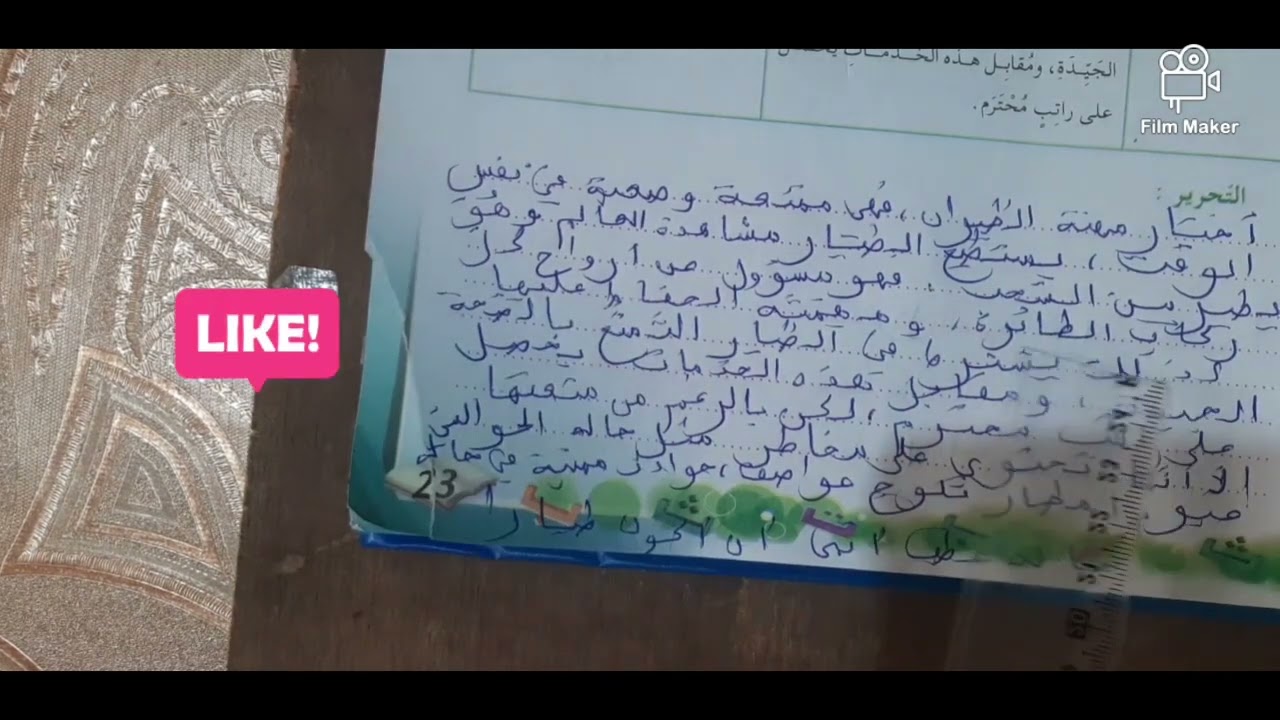 الجَيِّدَةِ، ومُقابِل هذه الخَدَماتِ
على راتِبٍ مُحْتَرَم.
Film Maker
التَحرير :
أختار مهنة الطيران، فهي ممتعة وصعبة في نفس
الوقت، يستطيع الطيار مشاهدة العالم وهُوَ
يطير بين السحب. فهو مسؤول عن أرواح كل
ركاب الطائرة، ومهمته الحفاظ عليها
كذلك يشترط في الطيار التمتع بالصحة
الجيدة، ومقابل هذه الخدمات يحصل
على محترم، لكن بالرغم من متعتها
إلا أنها تحتوي على مخاطر مثل حالة الجو
أمطار ثلوج عواصف، حوادث مهنية في حالة
أن أكون طيارا
LIKE!
23